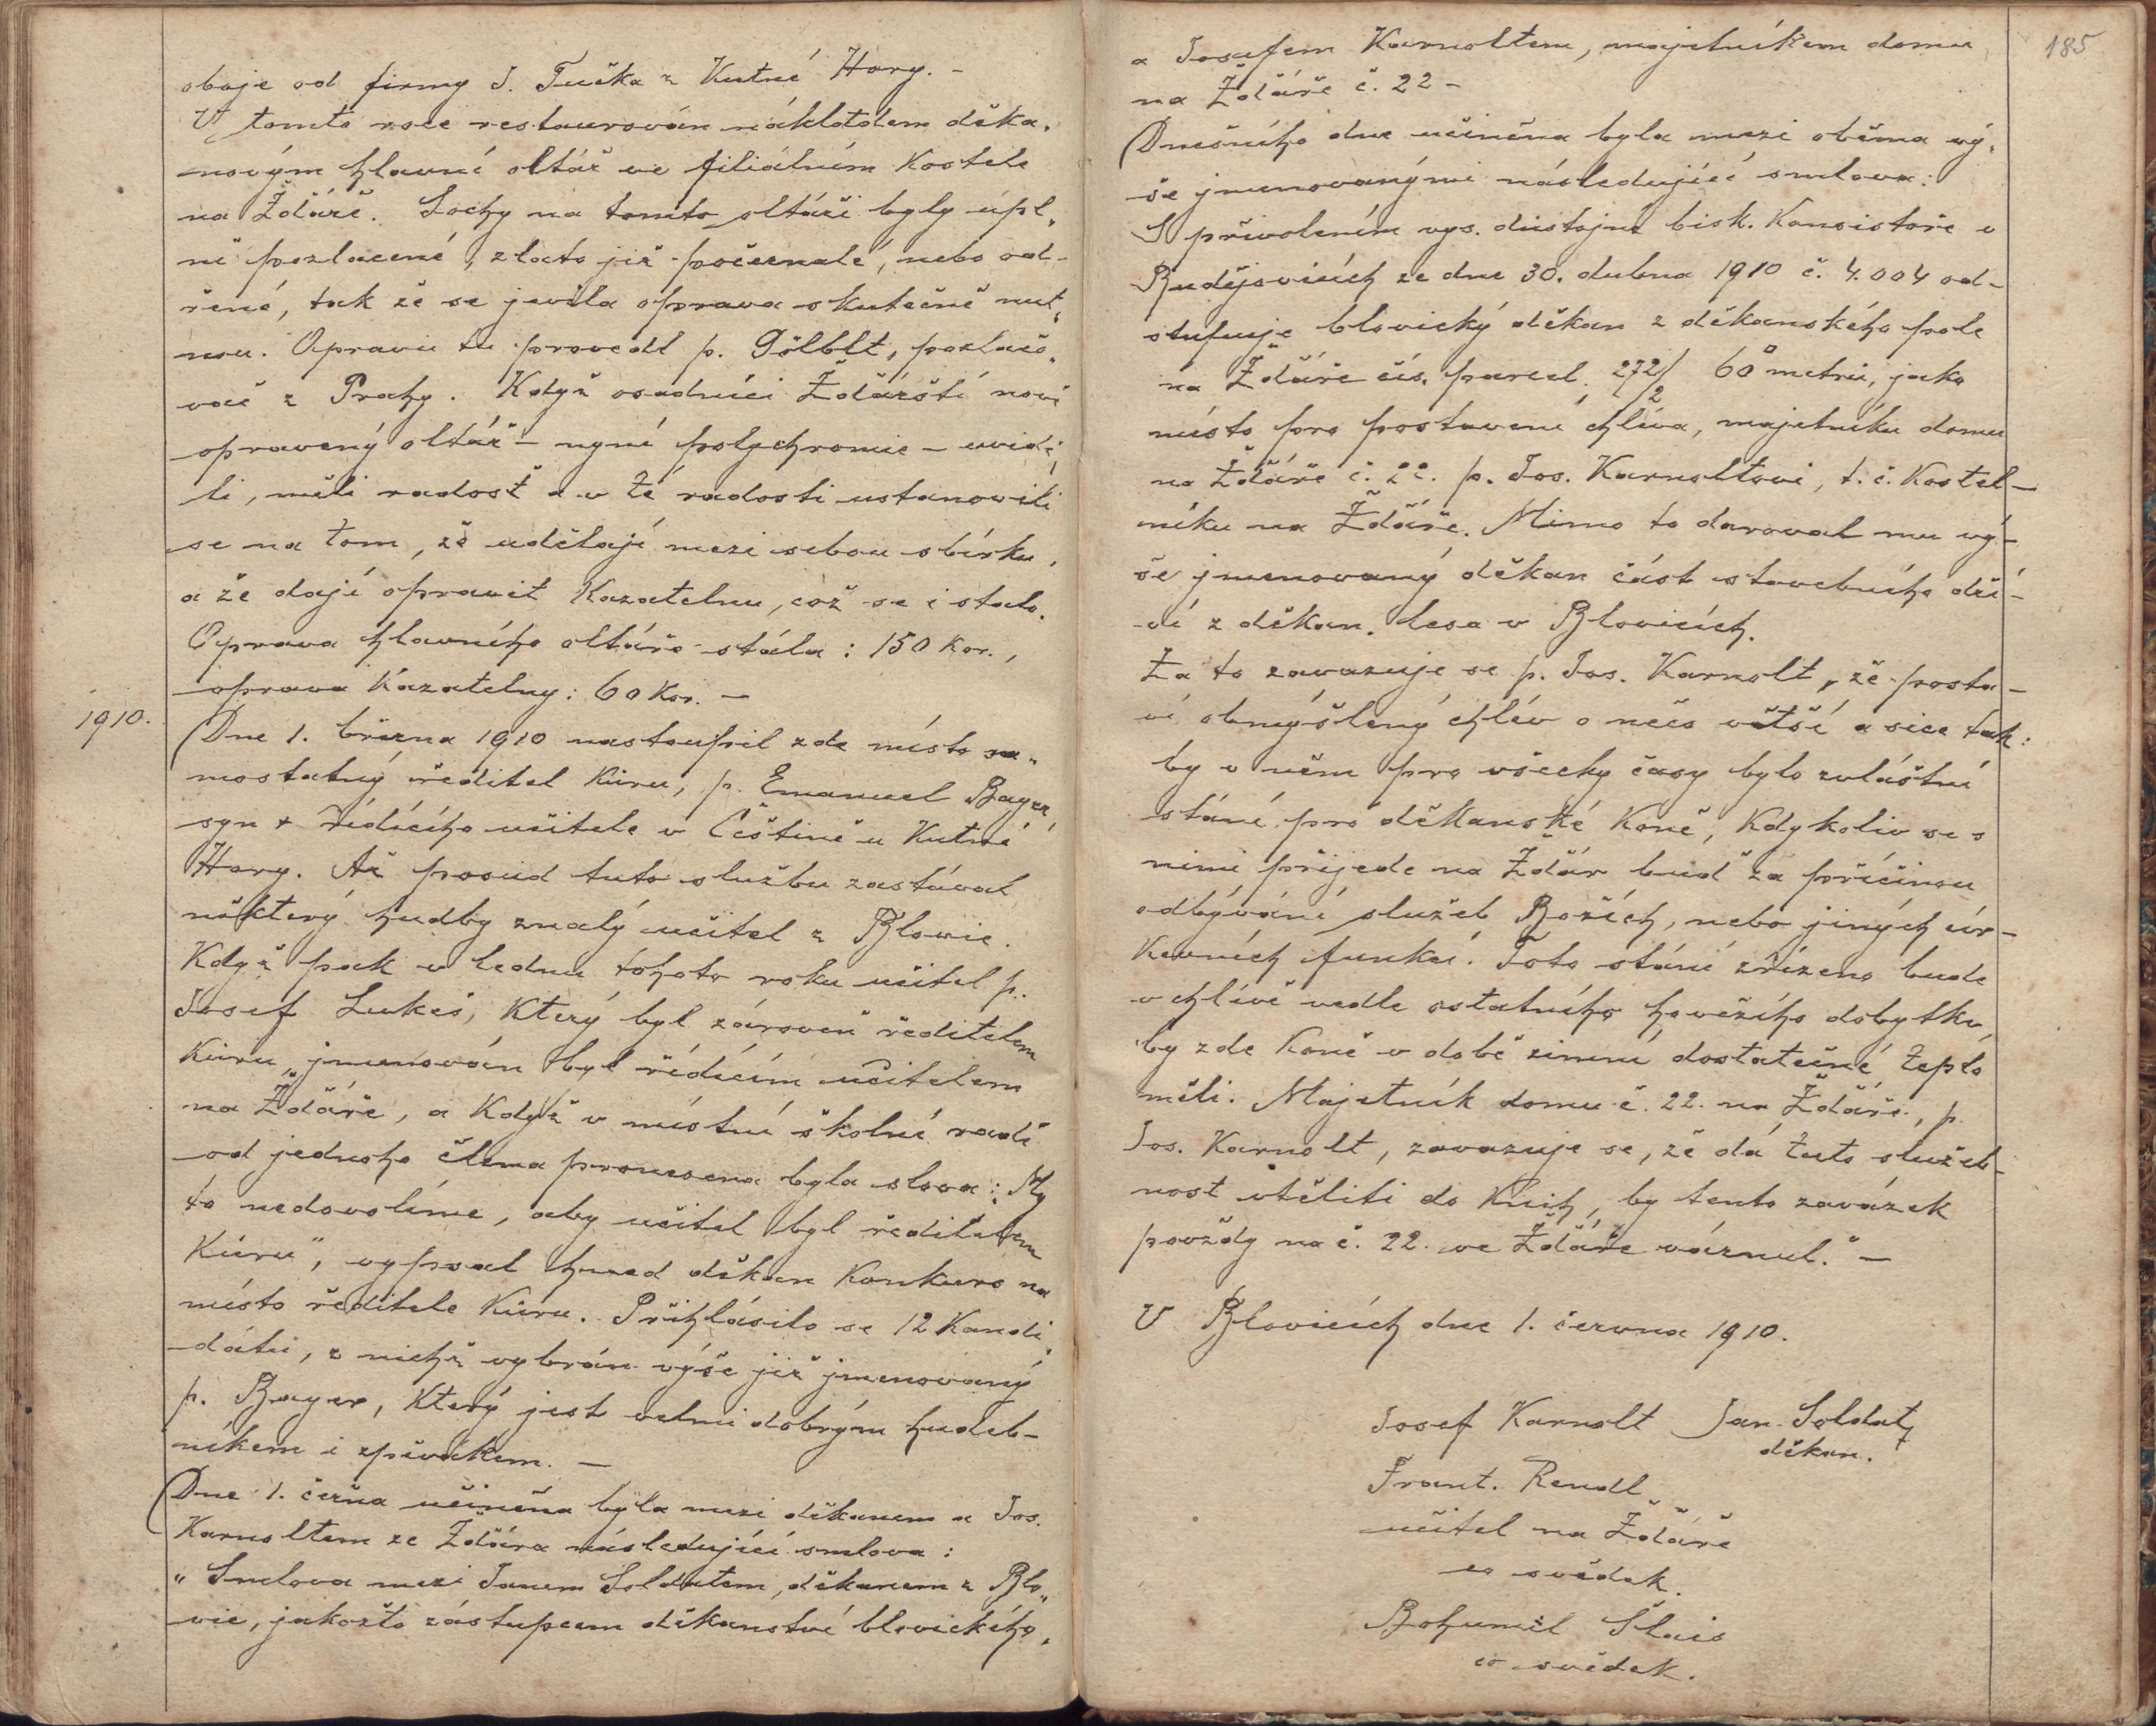 oboje od firmy J. Tučka z Kutné Hory. -
V tomto roce restaurován nákladem děka„
novým hlavní oltář ve filiálním kostele
na Žďáře. Sochy na tomto oltáři byly úpl„
ně pozlacené, zlato již počernalé, nebo od-
řené, tak že se jevila oprava skutečně nut„
nou. Opravu tu provedl p. Gölblt, pozlačo„
vač z Prahy. Když osadníci Žďárští nově
opravený oltář - nyní polychromie - uvidě„
li, měli radost a v té radosti ustanovili
se na tom, že udělají mezi sebou sbírku,
a že dají opravit kazatelnu, což se i stalo.
Oprava hlavního oltáře stála: 150 kor.,
oprava kazatelny: 60 kor. -
1910.
Dne 1. března 1910 nastoupil zde místo sa„
mostatný ředitel kůru, p. Emanuel Bayer,
syn + řídícího učitele v Čestině u Kutné
Hory. Až posud tuto službu zastával
některý hudby znalý učitel z Blovic.
Když pak v lednu tohoto roku učitel p.
Josef Lukeš, který byl zároveň ředitelem
kůru, jmenován byl řídícím učitelem
na Žďáře, a když v místní školní radě
od jednoho člena pronesena byla slova: „My
to nedovolíme, aby učitel byl ředitelem
kůru", vypsal hned děkan konkurs na
místo ředitele kůru. Přihlásilo se 12 kandi„
dátů, z nichž vybrán výše již jmenovaný
p. Bayer, který jest velmi dobrým hudeb-
níkem i zpěvákem. -
Dne 1. čeřna učiněna byla mezi děkanem a Jos.
Karnoltem ze Žďára následující smlova:
„Smlova mezi Janem Soldátem, děkanem z Blo„
vic, jakožto zástupcem děkanství blovického,
185
a Josefem Karnoltem, majetníkem domu
na Žďáře č. 22 -
Dnešního dne učiněna byla mezi oběma vý„
še jmenovanými následující smlova:
S přivolením vys. důstojné bisk. konsistoře v
Budějovicích ze dne 30. dubna 1910 č. 4.004 od-
stupuje blovický děkan z děkanského pole
na Žďáře čís. parcel. 272/2 60 □ metrů, jako
místo pro postavení chléva, majetníku domu
na Žďáře č. 22. p. Jos. Karnoltovi, t. č. kostel-
níku na Žďáře. Mimo to daroval mu vý-
še jmenovaný děkan část stavebního dří-
ví z děkan. lesa v Blovicích.
Za to zavazuje se p. Jos. Karnolt, že posta-
ví obmýšlený chlév o něco větší a sice tak:
by v něm pro všecky časy bylo zvláštní
stání pro děkanské koně, kdykoliv se s
nimi přijede na Žďár buď za příčinou
odbývání služeb Božích, nebo jiných cír-
kevních funkcí. Toto stání zřízeno bude
v chlévě vedle ostatního hovězího dobytku,
by zde koně v době zimní dostatečné teplo
měli. Majetník domu č. 22. na Žďáře, p.
Jos. Karnolt, zavazuje se, že dá tuto služeb-
nost vtěliti do knih, by tento závazek
povždy na č. 22. ve Žďáře váznul." -
V Blovicích dne 1. června 1910.
Josef Karnolt Jan Soldát,
děkan.
Frant. Rendl
učitel na Žďáře
co svědek.
Bohumil Šlais
co svědek.